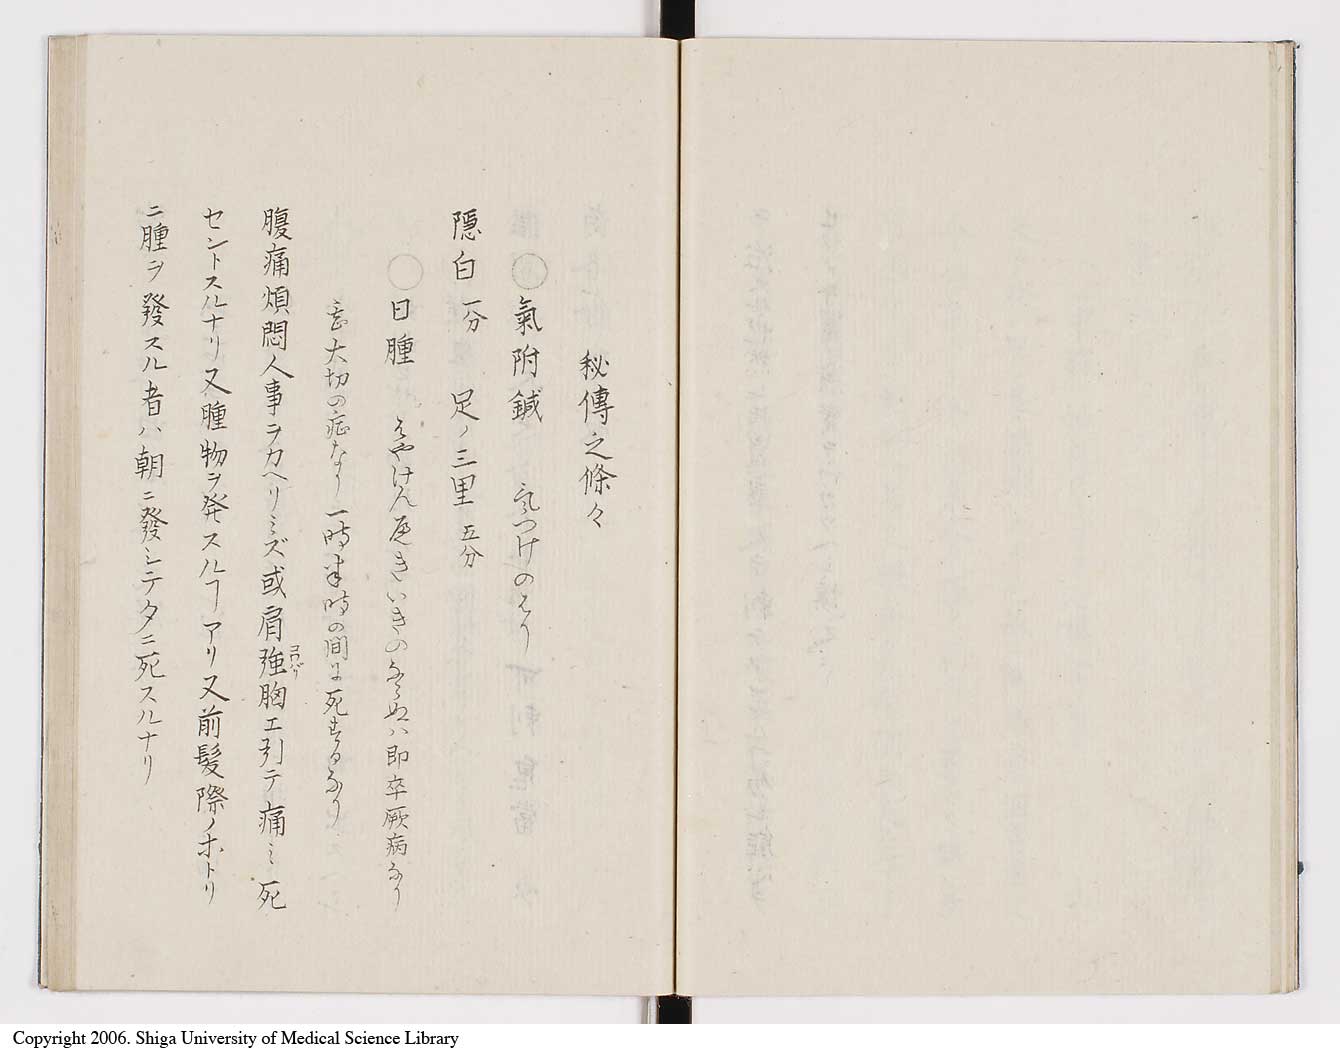 秘傳之條々
○氣附鍼 気つけのはり
隠白 一分 足ノ三里 五分
○日腫 はやけん
いきの
ハ即卒厥病なり
大切の症なり一時半時の間に死するなり
腹痛煩悶人事ヲカヘリミズ或肩強胸エ引テ痛ミ死
コハリ
セントスルナリ又腫物ヲ発スルヿアリ又前髪際ノホトリ
ニ腫ヲ發スル者ハ朝ニ發シテタニ死スルナリ
Copyright 2006. Shiga University of Medical Science Library